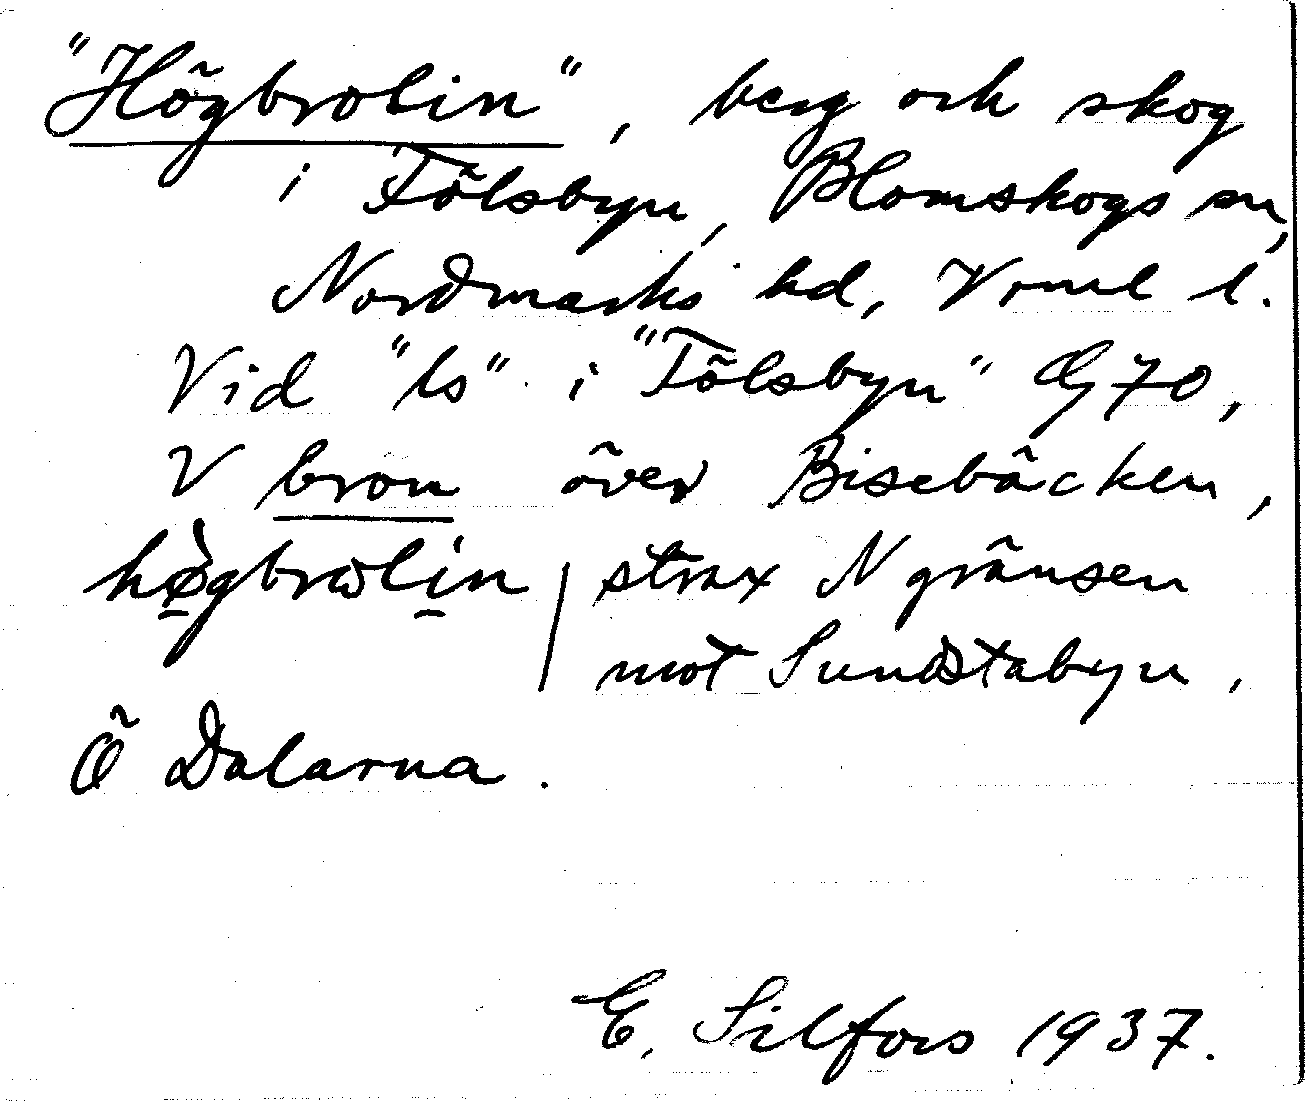 "Högbrolin", berg och skog
i Tölsbyn, Blomskogs sn,
Nordmarks hd, Vrml l.
Vid "ls" i "Tölsbyn" G70,
V bron över Bisebäcken,
hø̀gbrωlin | strax N gränsen
mot Sundstabyn,
Ö Dalarna.
E. Silfors 1937.